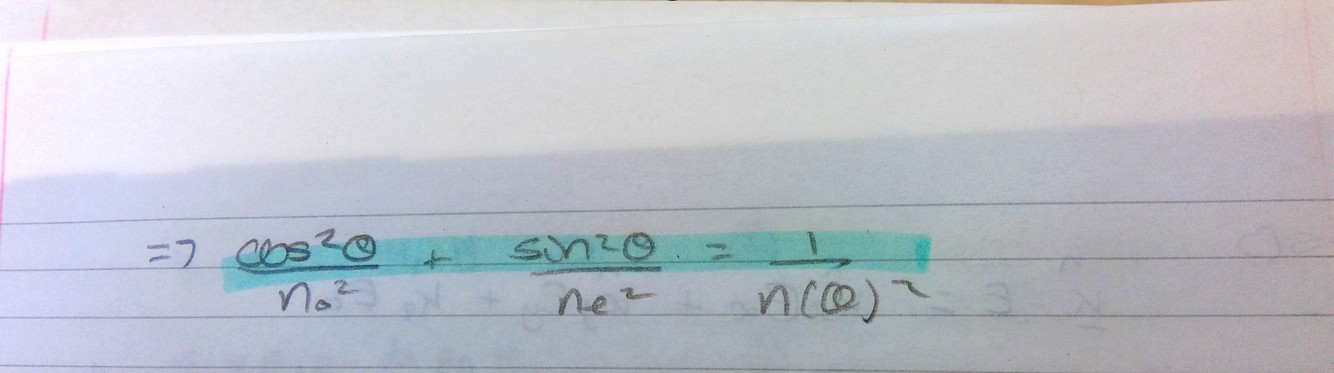 => cos²θ/n₀² + sin²θ/nₑ² = 1/n(θ)²